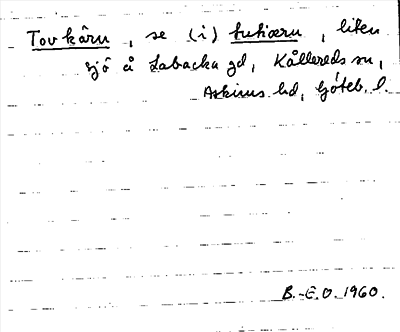 Tovkårn, se (i)                , liten
sjö å Labacka gd, Kållereds sn,
Askims hd, Göteb. l.
B.-E.O. 1960.